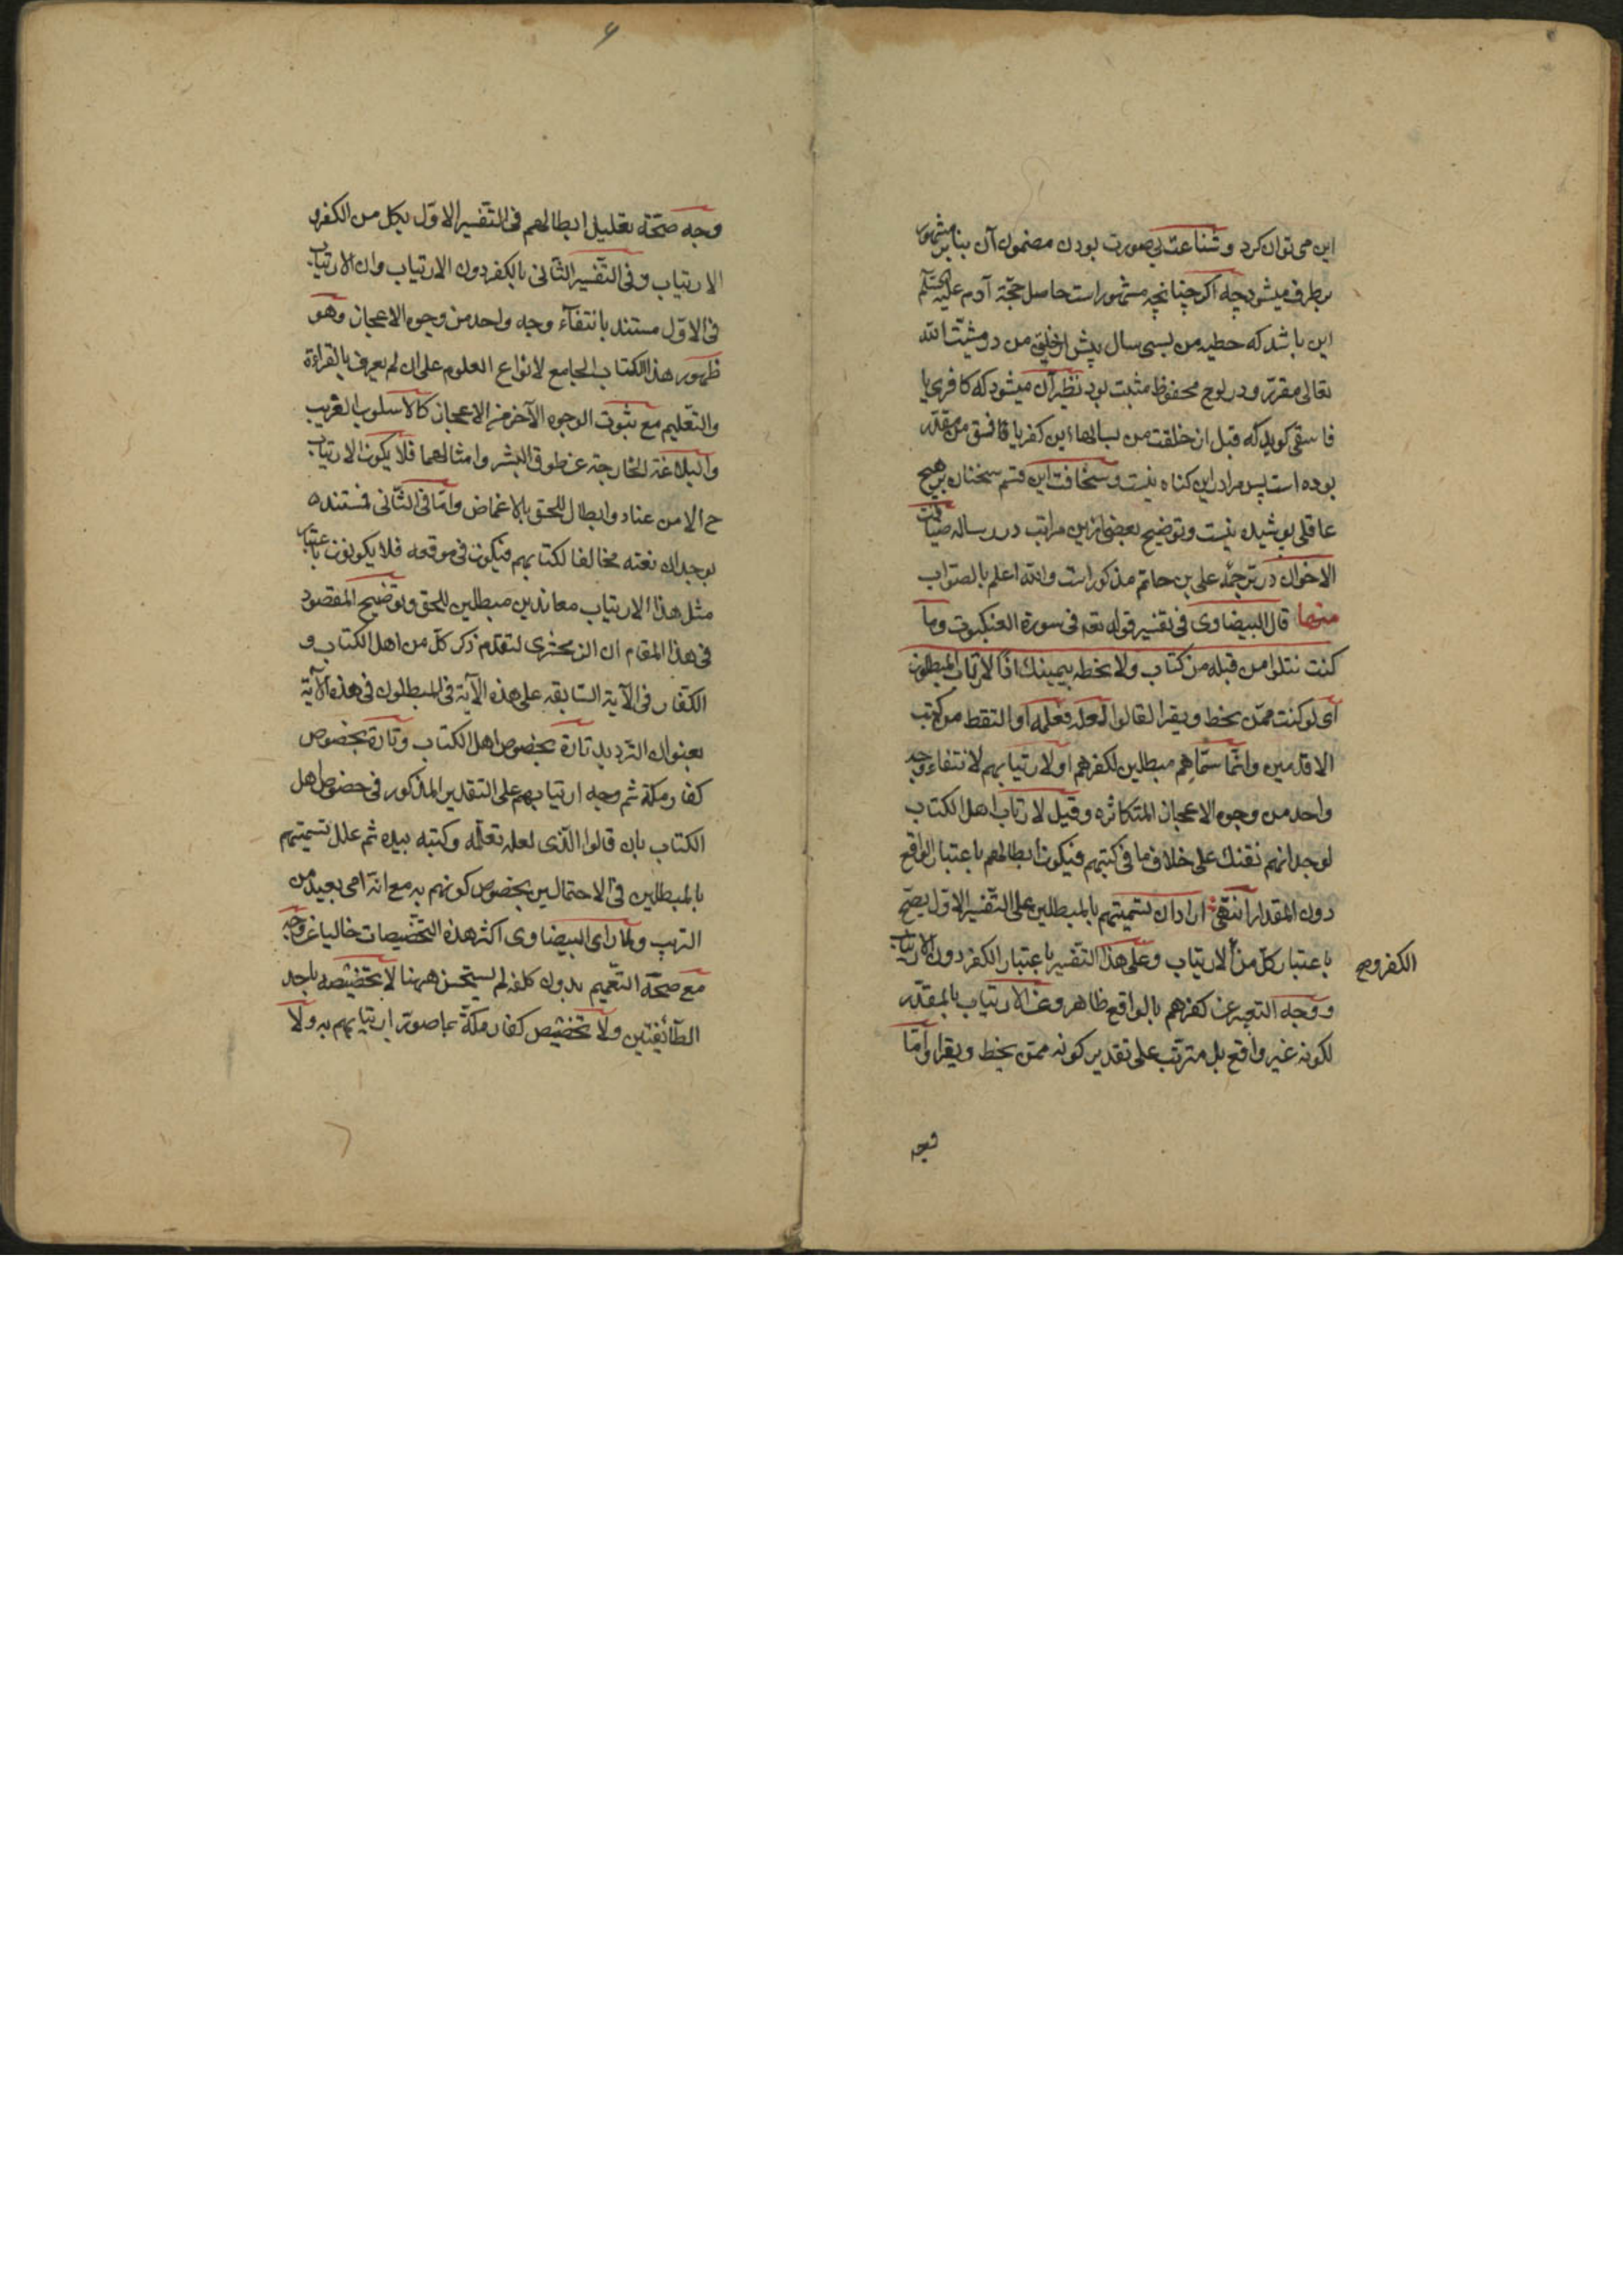 این می توان کرد و شناعت بی صورت بودن مضمون آن بنابر مشهور
بر طرف میشود چه اکر چنانچه مشهور است حاصل حجّة آدم علیه السّلم
این باشد که خطیه من بسی سال پیش از خلق من در مشیّت الله
تعالی مقرّر و در لوح محفوظ مثبت بود نظیر آن میشود که کافری یا
فاسقی کوید که قبل از خلقت من بسالها این کفر یا فسق من مقدّر
بوده است پس مرا در این کناه نیست و سخافت این قسم سخنان بر هیچ
عاقلی پوشیده نیست و توضیح بعضی از این مراتب در رساله ضیافت
الاخوان در ترجمهٔ علی بن حاتم مذکور است والله اعلم بالصّواب
منها قال البیضاوی فی تفسیر قوله تعه فی سورة العنکبوت وما
کنت تتلوا من قبله من کتاب ولا تخطه بیمینك اذًا لارتاب المبطلون
ای لو کنت ممّن یخط ویقرا لقالوا لعله تعلّمه او التقط من کتب
الاقدمین وانّما سمّاهم مبطلین لکفرهم او لارتیابهم لانتفاء وجه
واحد من وجوه الاعجاز المتکاثره وقیل لارتاب اهل الکتاب
لوجدانهم نعتك علی خلاف ما فی کتبهم فیکون ابطالهم باعتبار الواقع
دون المقدار انتهی اراد ان تسمیتهم بالمبطلین علی التّفسیر الاوّل یصحّ
باعتبار کلّ من الارتیاب وعلی هذا التفسیر باعتبار الکفر دون الارتیاب
الکفر وح
ووجه التعبیر عن کفرهم بالواقع ظاهر وعن الارتیاب بالمقدّر
لکونه غیر واقع بل مترتّب علی تقدیر کونه ممّن یخط ویقرا وامّا
وجه
۶
وجه صحّة تعلیل ابطالهم فی التّفسیر الاوّل بکل من الکفر و
الارتیاب وفی التّفسیر الثّانی بالکفر دون الارتیاب وان الارتیاب
فی الاوّل مستند بانتفآء وجه واحد من وجوه الاعجاز وهو
ظهور هذا الکتاب الجامع لانواع العلوم علی ان لم یعرف بالقراءة
والتّعلیم مع ثبوت الوجوه الآخر من الاعجاز کالاسلوب الغریب
والبلاغة الخارجة عن طوق البشر وامثالهما فلا یکون الارتیاب
ح الا من عناد وابطال للحق بالاغماض وامّا فی الثّانی فمستنده
لوجدان نعته مخالفا لکتابهم فیکون فی موقعه فلا یکونون باعتبار
مثل هذا الارتیاب معاندین مبطلین للحق وتوضیح المقصود
فی هذا المقام ان الزمخشری لتقدّم ذکر کلّ من اهل الکتاب و
الکفّار فی الآیة السّابقه علی هذه الآیة فی المبطلون فی هذه الآیة
بعنوان التردید تارة بخصوص اهل الکتاب وتارة بخصوص
کفار مکّة ثم وجه ارتیابهم علی التقدیر المذکور فی خصوص اهل
الکتاب بان قالوا الّذی لعله تعلّمه وکتبه بیده ثم علل تسمیتهم
بالمبطلین فی الاحتمالین بخصوص کونهم به مع انّه امی بعید من
الریب ولمّا رای البیضاوی اکثر هذه التخصّیصات خالیا عن وجه
مع صحّة التعّمیم بدون کلفه لم یستحسن ههنا لا بتخصیصه باحد
الطّائفتین ولا تخصیص کفار مکّة بما صوّر ارتیابهم به ولا